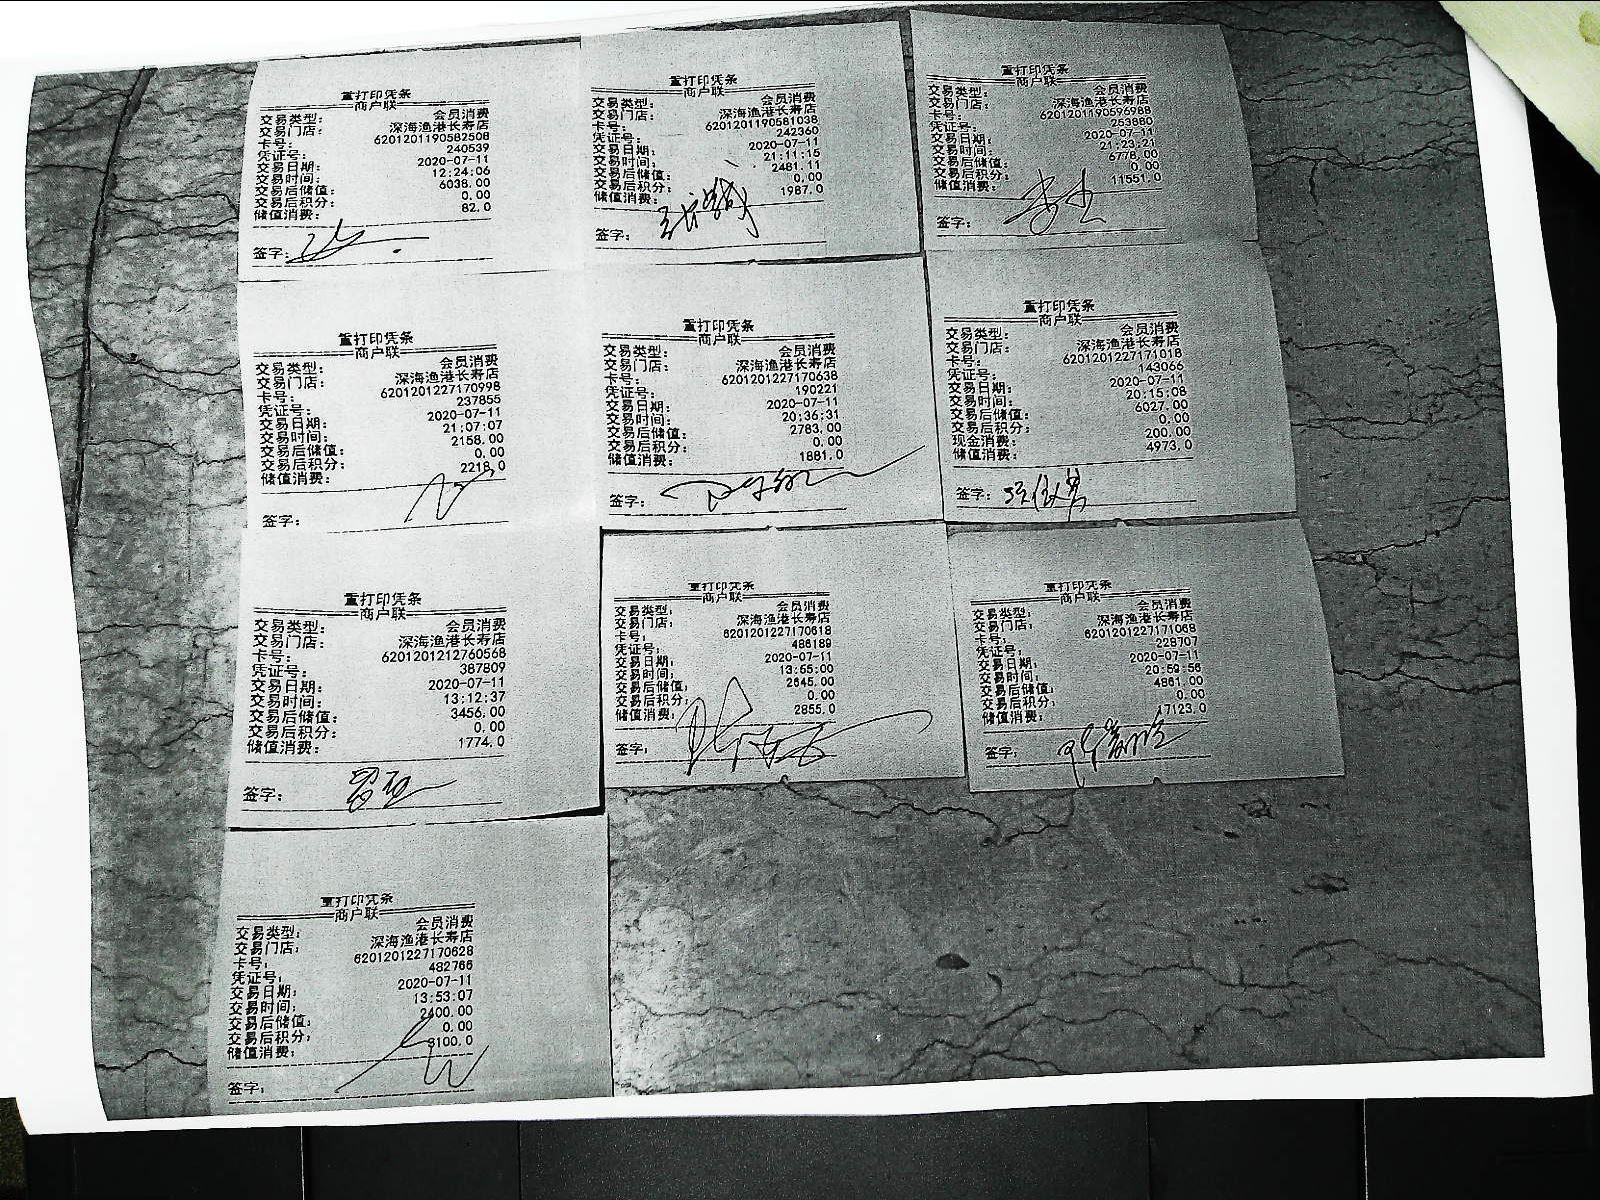 重打印凭条
商户联
交易类型： 会员消费
交易门店： 深海渔港长寿店
卡号： 6201201190582508
凭证号： 240539
交易日期： 2020-07-11
交易时间： 12:24:06
交易后储值： 6038.00
交易后积分： 0.00
储值消费： 82.0
签字：
重打印凭条
商户联
交易类型： 会员消费
交易门店： 深海渔港长寿店
卡号： 6201201190581038
凭证号： 242360
交易日期： 2020-07-11
交易时间： 21:11:15
交易后储值： 2481.11
交易后积分： 0.00
储值消费： 1987.0
签字：
重打印凭条
商户联
交易类型： 会员消费
交易门店： 深海渔港长寿店
卡号： 6201201190596988
凭证号： 253880
交易日期： 2020-07-11
交易时间： 21:23:21
交易后储值： 6778.00
交易后积分： 0.00
储值消费： 11551.0
签字：
重打印凭条
商户联
交易类型： 会员消费
交易门店： 深海渔港长寿店
卡号： 6201201227170998
凭证号： 237855
交易日期： 2020-07-11
交易时间： 21:07:07
交易后储值： 2158.00
交易后积分： 0.00
储值消费： 2218.0
签字：
重打印凭条
商户联
交易类型： 会员消费
交易门店： 深海渔港长寿店
卡号： 6201201227170638
凭证号： 190221
交易日期： 2020-07-11
交易时间： 20:36:31
交易后储值： 2783.00
交易后积分： 0.00
储值消费： 1881.0
签字：
重打印凭条
商户联
交易类型： 会员消费
交易门店： 深海渔港长寿店
卡号： 6201201227171018
凭证号： 143066
交易日期： 2020-07-11
交易时间： 20:15:08
交易后储值： 6027.00
交易后积分： 0.00
现金消费： 200.00
储值消费： 4973.0
签字：
重打印凭条
商户联
交易类型： 会员消费
交易门店： 深海渔港长寿店
卡号： 6201201212760568
凭证号： 387809
交易日期： 2020-07-11
交易时间： 13:12:37
交易后储值： 3456.00
交易后积分： 0.00
储值消费： 1774.0
签字：
重打印凭条
商户联
交易类型： 会员消费
交易门店： 深海渔港长寿店
卡号： 6201201227170618
凭证号： 486189
交易日期： 2020-07-11
交易时间： 13:55:00
交易后储值： 2645.00
交易后积分： 0.00
储值消费： 2855.0
签字：
重打印凭条
商户联
交易类型： 会员消费
交易门店： 深海渔港长寿店
卡号： 6201201227171068
凭证号： 229707
交易日期： 2020-07-11
交易时间： 20:59:56
交易后储值： 4861.00
交易后积分： 0.00
储值消费： 17123.0
签字：
重打印凭条
商户联
交易类型： 会员消费
交易门店： 深海渔港长寿店
卡号： 6201201227170628
凭证号： 482766
交易日期： 2020-07-11
交易时间： 13:53:07
交易后储值： 2400.00
交易后积分： 0.00
储值消费： 3100.0
签字：